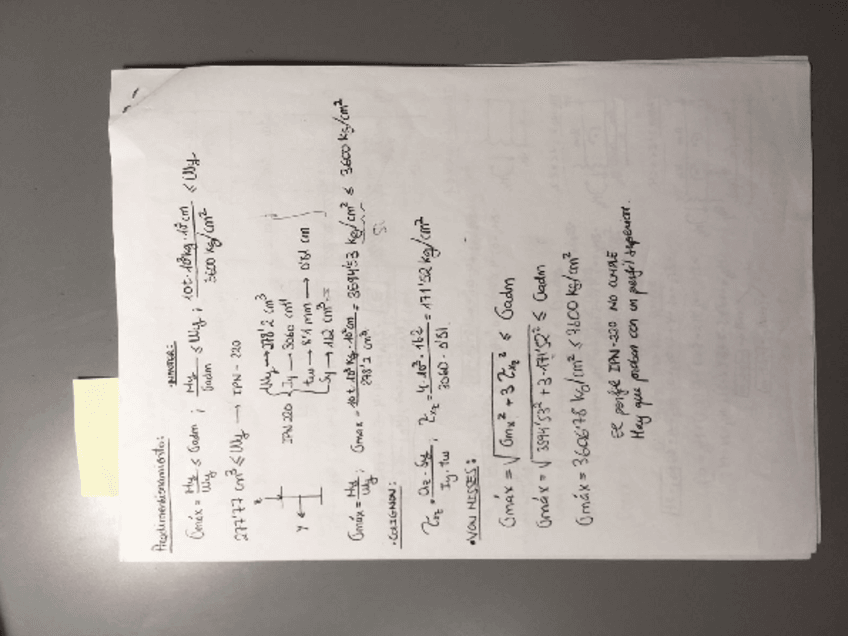 Predimensionamiento:
• NAVIER:
σmáx = My/Wy ≤ σadm ; My/σadm ≤ Wy ; 10t·10³kg·10²cm / 3600 kg/cm² ≤ Wy
277'77 cm³ ≤ Wy → IPN-220
z
y
IPN 220 { Wy → 278'2 cm³
Iy → 3060 cm⁴
tw → 8'1 mm → 0'81 cm
Sy → 162 cm³
σmáx = My/Wy ; σmax = 10t·10³kg·10²cm / 278'2 cm³ = 3594'53 kg/cm² ≤ 3600 kg/cm²
Si
• COLIGNON:
τxz = Qz·Sy / Iy·tw ; τxz = 4·10³·162 / 3060·0'81 = 171'52 kg/cm²
• VON MISSES:
σmáx = √(σmx² + 3τxz²) ≤ σadm
σmáx = √(3594'53² + 3·171'52²) ≤ σadm
σmáx = 3606'78 kg/cm² ≤ 3600 kg/cm²
El perfil IPN-220 NO CUMPLE
Hay que probar con un perfil superior.